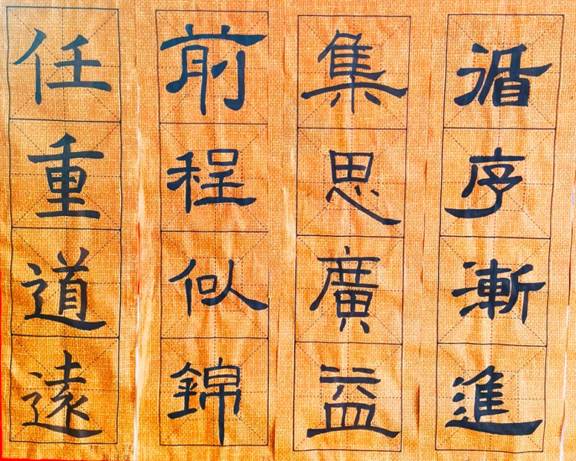 循序漸進
集思廣益
前程似錦
任重道遠